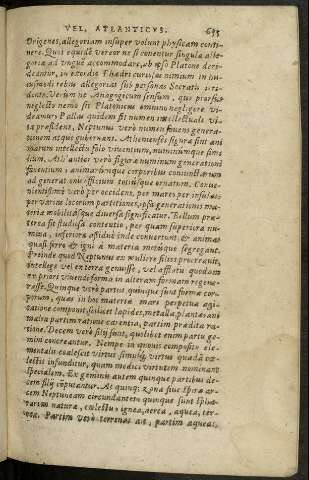 VEL, ATLANTICVS. 635
Origenes, allegoriam insuper volunt physicam conti-
nere. Quos equidē vereor ne si conentur singula alle-
goriæ ad vnguē accommodare, ab ipso Platone deri-
deantur, in exordio Phædri curiosas nimium in hu-
iusmodi rebus allegorias sub persona Socratis irri-
dente. Verùm ne Anagogicum sensum, quo prorsus
neglecto nemo sit Platonicus omnino negligere vi-
deamur: Pallas quidem sit numen intellectuale vi-
tæ præsidens, Neptunus verò numen fouens genera-
tionem atque gubernans. Athenienses figura sint ani
marum intellectu solo viuentium, numinumque simi
lium. Atlātici verò figura numinum generationi
fauentium: animarumque corporibus coniunctarum
ad generationis officium denique ornatum. Conue-
nientissimè verò per occidens, per mare, per insulas
per varias locorum partitiones, ipsa generationis ma-
teria mobilitasque diuersa significatur. Bellum præ-
terea sit studiosa contentio, per quam superiora nu-
mina, inferiora assiduè inde conuertunt & animas
quasi ferro & igni à materia metuique segregant.
Proinde quod Neptunus ex muliere filios procreauit,
intellege vel ex terra genuisse, vel afflatu quodam
ex priori viuendi forma in alteram formam regene-
rasse. Quinque verò partus, quinque sunt formæ cor-
porum, quas in hac materiæ mare perpetua agi-
tatione componit, scilicet lapides, metalla, plantæ, ani
malia partim ratione carentia, partim prædita ra-
tione. Decem verò filij sunt, quolibet enim partu ge-
mini concreantur. Nempe in omni composito ele-
mentalis coalescit virtus simulque virtus quædā cœ-
lestis infunditur, quam medici virtutem nominant
specialem. Ex geminis autem quinque partibus de-
cem filij computantur. At quinque zonæ siue spiræ ar-
cem Neptuneam circundantes quinque sunt sphæ-
rarum natura, cœlestis, ignea, aerea, aquea, ter-
rea. Partim verò terreas ait, partim aqueas,